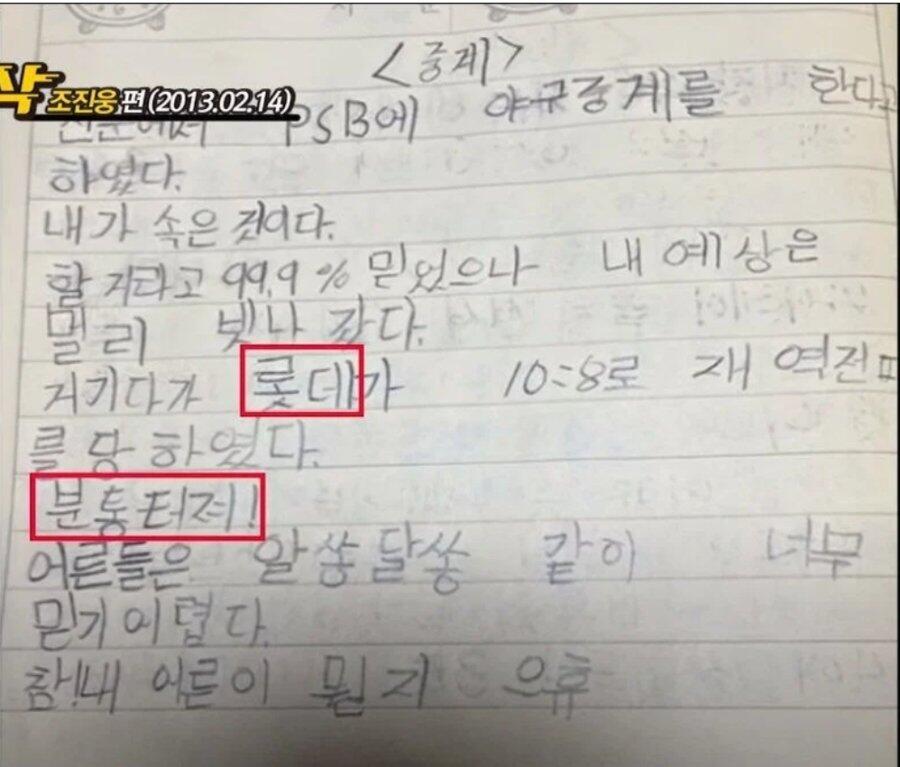 <중계>
싹
조진웅 편 (2013.02.14)
신문에서 PSB에 야구중계를 한다고
하였다.
내가 속은 것이다.
할 거라고 99.9% 믿었으나 내 예상은
멀리 빗나 갔다.
거기다가 롯데가 10:8로 재 역전ㅍ
를 당 하였다.
분통터져!
어른들은 알쏭달쏭 같이 너무
믿기 어렵다.
참! 내 어른이 뭔지 으휴